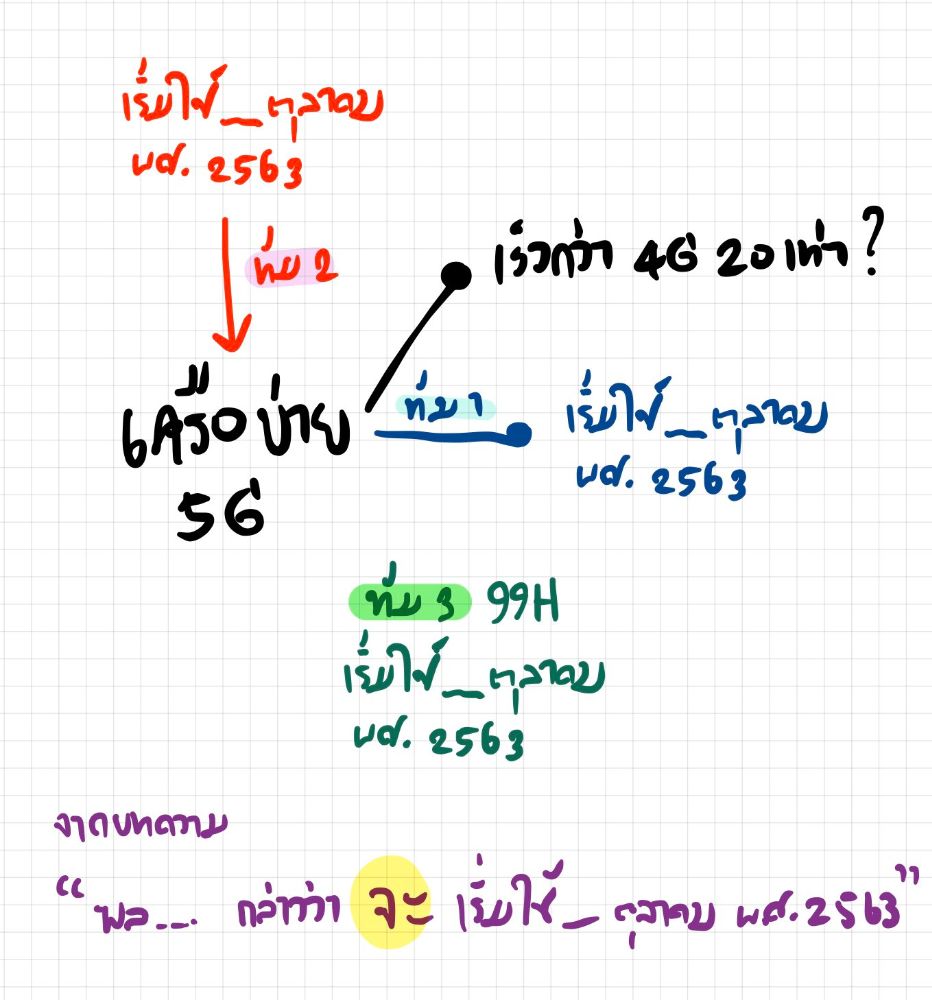 เริ่มใช้_ตุลาคม
พศ. 2563
ทีม 2
เร็วกว่า 4G 20 เท่า?
เครือข่าย
5G
ทีม 1
เริ่มใช้_ตุลาคม
พศ. 2563
ทีม 3 99H
เริ่มใช้_ตุลาคม
พศ. 2563
จากบทความ
“พล.... กล่าวว่า จะ เริ่มใช้_ ตุลาคม พศ.2563”